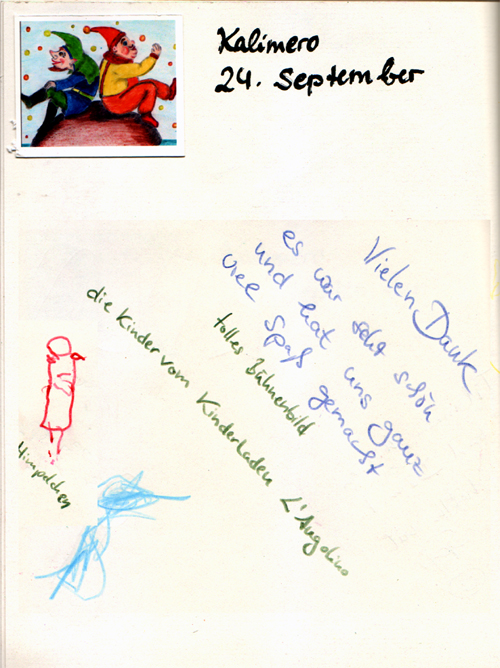 Kalimero
24. September
Vielen Dank
es war sehr schön
und hat uns ganz
viel Spaß gemacht
tolles Bühnenbild
die Kinder vom Kinderladen L'Angolino
Himpelchen